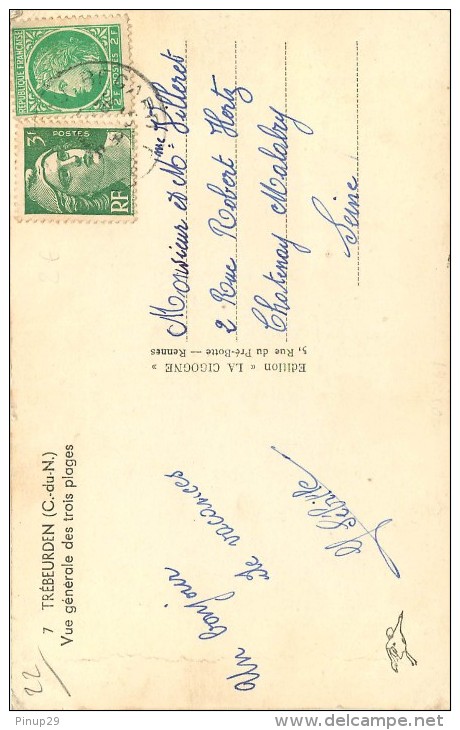 7 TRÉBEURDEN (C.-du-N.)
Vue générale des trois plages
Un bonjour
de vacances
Edition « LA CIGOGNE »
5, Rue du Pré-Botte — Rennes
REPUBLIQUE FRANÇAISE
2F POSTES 2F
3F
POSTES
RF
Monsieur et Mme Villeret
2 Rue Robert Hertz
Chatenay Malabry
Seine
22
Pinup29
www.delcampe.net